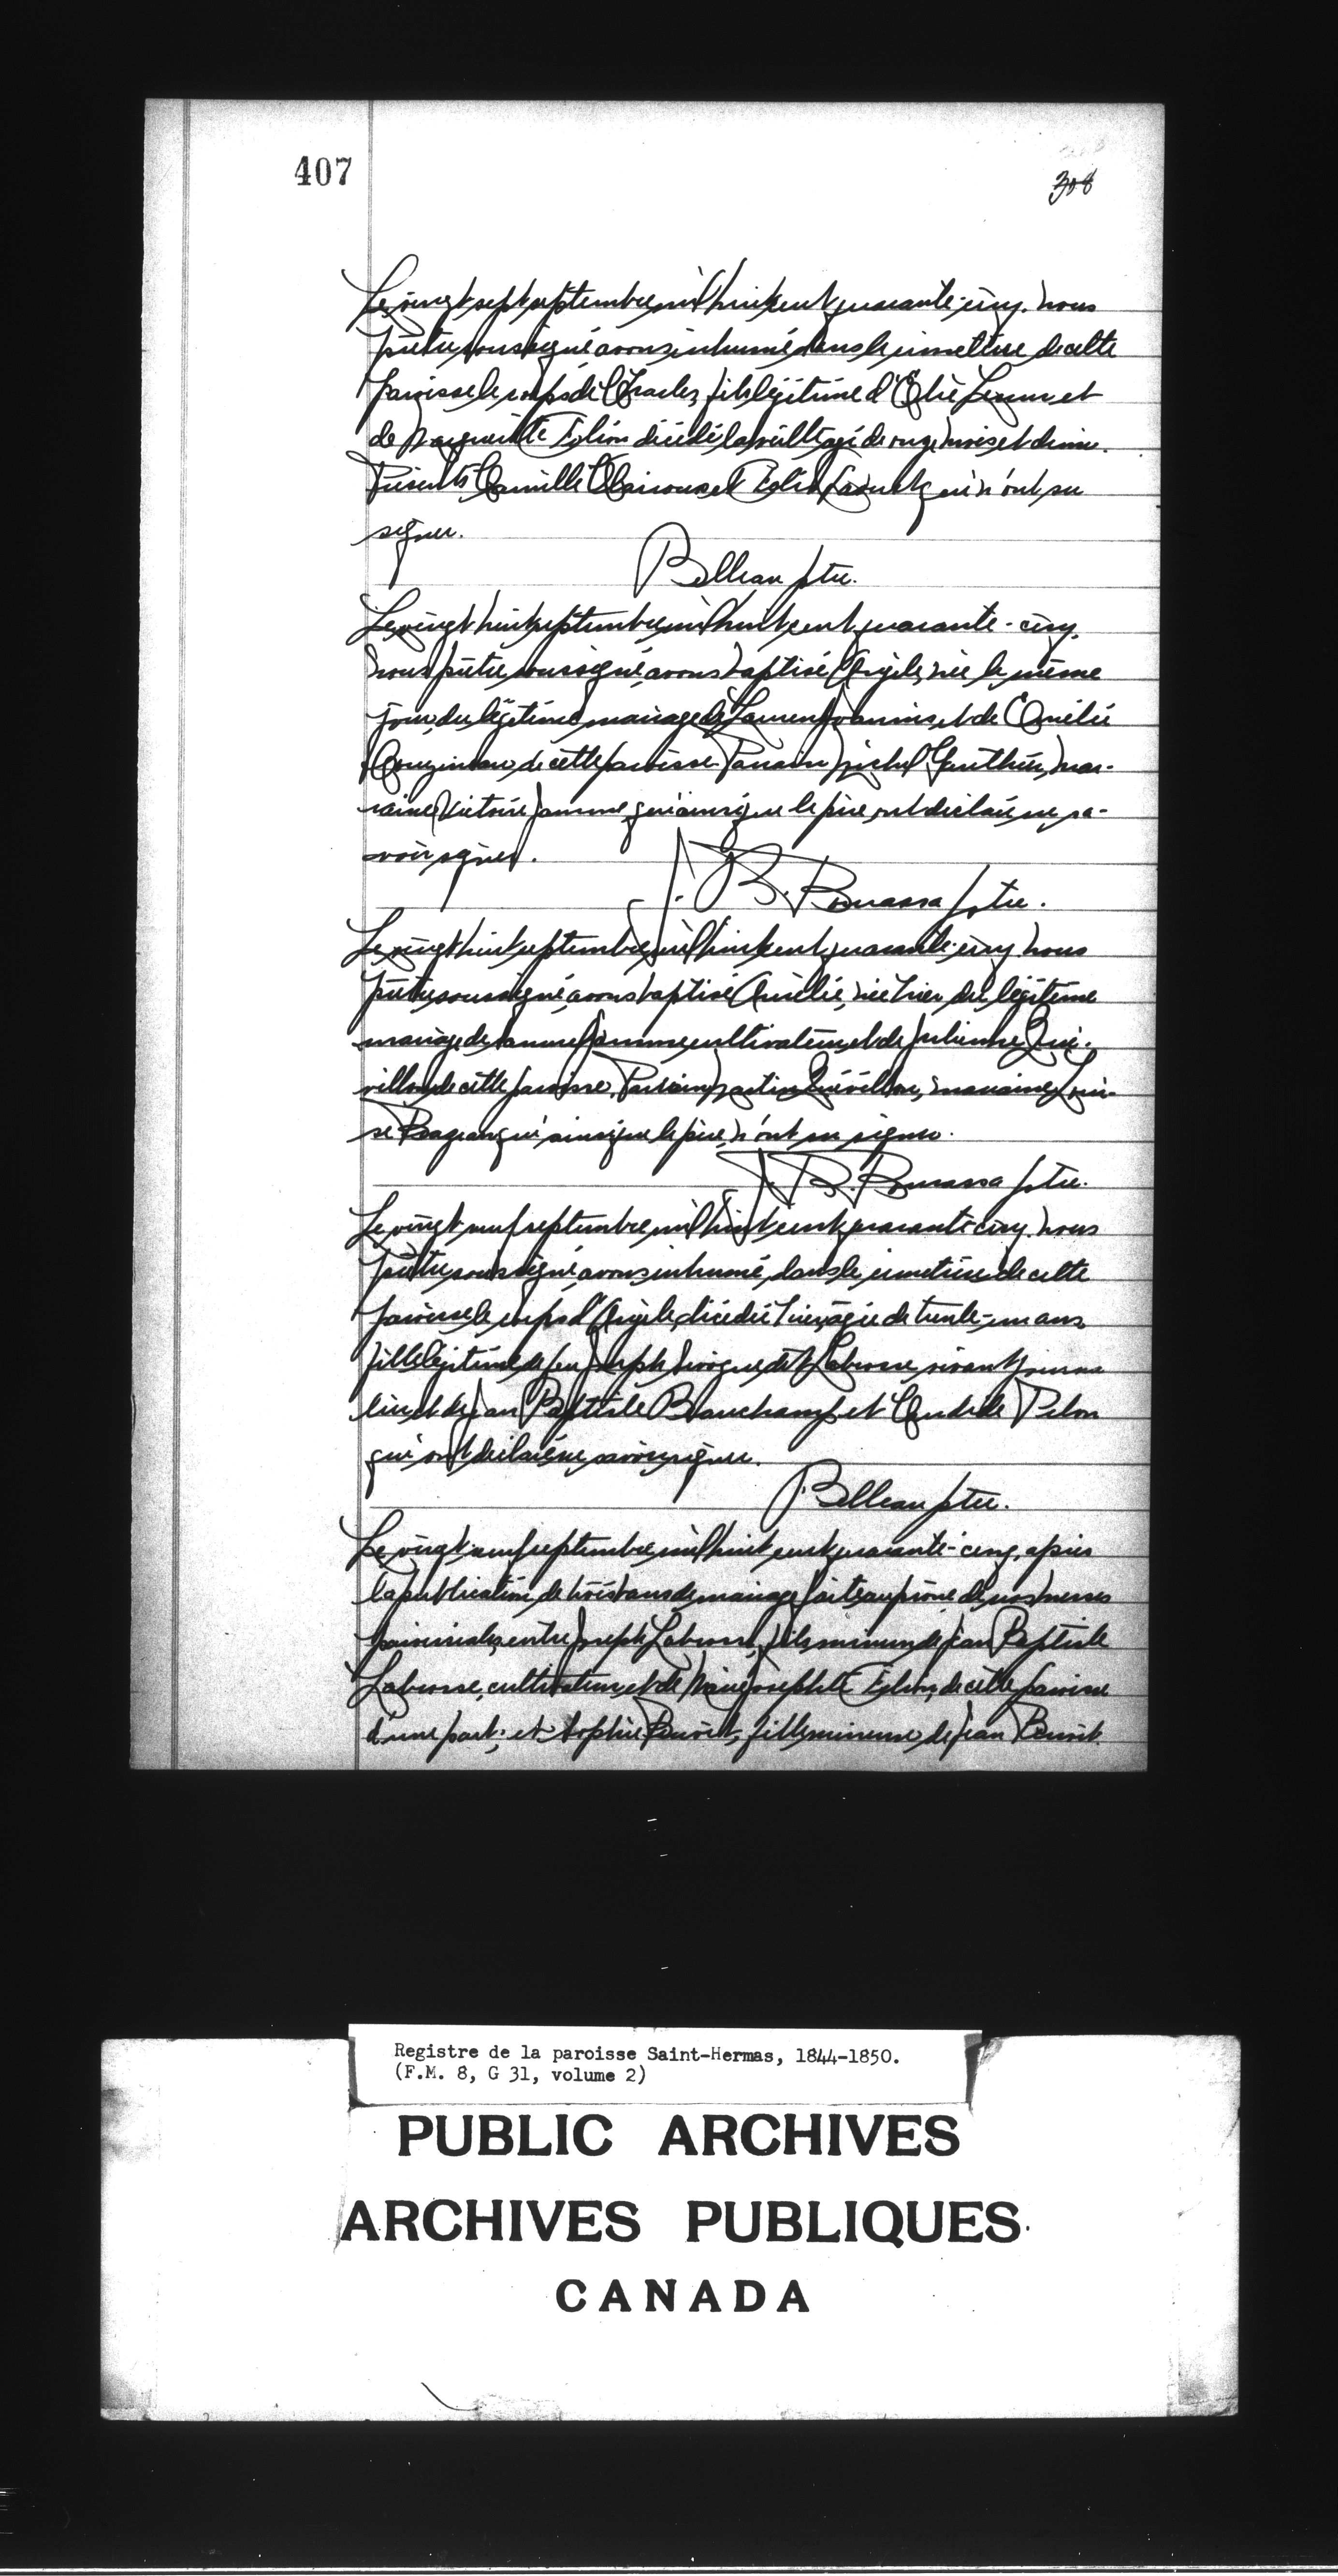 407
308
Le vingt sept septembre mil huit cent quarante-cinq, nous
prêtre soussigné avons inhumé dans le cimetière de cette
paroisse le corps de Charles, fils légitime d'Elie et
de Marguerite Filion décédé la veille agé de onze mois et demi.
Présents Camille et qui n'ont su
signer.
Belleau ptre.
Le vingt huit septembre mil huit cent quarante-cinq,
nous prêtre soussigné, avons baptisé Angèle, née le même
jour, du légitime mariage de Laurent et de Amélie
de cette paroisse. Parrain Michel Gauthier, mar-
raine Victoire qui ainsi que le père, ont déclaré ne sa-
voir signer.
J. B. Bourassa ptre.
Le vingt huit septembre mil huit cent quarante-cinq nous
prêtre soussigné, avons baptisé Aurélie, née hier du légitime
mariage de cultivateur, et de Julienne Qué-
villon de cette paroisse. Parrain Martin Quévillon, marraine Loui-
se qui ainsi que le père, n'ont su signer.
J. B. Bourassa ptre.
Le vingt neuf septembre mil huit cent quarante-cinq, nous
prêtre soussigné, avons inhumé, dans le cimetière de cette
paroisse le corps d'Angèle, décédée hier, agée de trente-un ans
fille légitime de feu Joseph dit Labrosse, vivant
et de Jean Baptiste Beauchamp et Pilon
qui ont déclaré ne savoir signer.
Belleau ptre.
Le vingt neuf septembre mil huit cent quarante-cinq, après
la publication de trois bans de mariage faite au prône de nos messes
paroissiales, entre Joseph Labrosse, fils mineur de Jean Baptiste
Labrosse, cultivateur, et de Marie Josephte Filion, de cette paroisse
d'une part; et Sophie Benoit, fille mineure, de Jean Benoit
Registre de la paroisse Saint-Hermas, 1844-1850.
(F.M. 8, G 31, volume 2)
PUBLIC ARCHIVES
ARCHIVES PUBLIQUES
CANADA